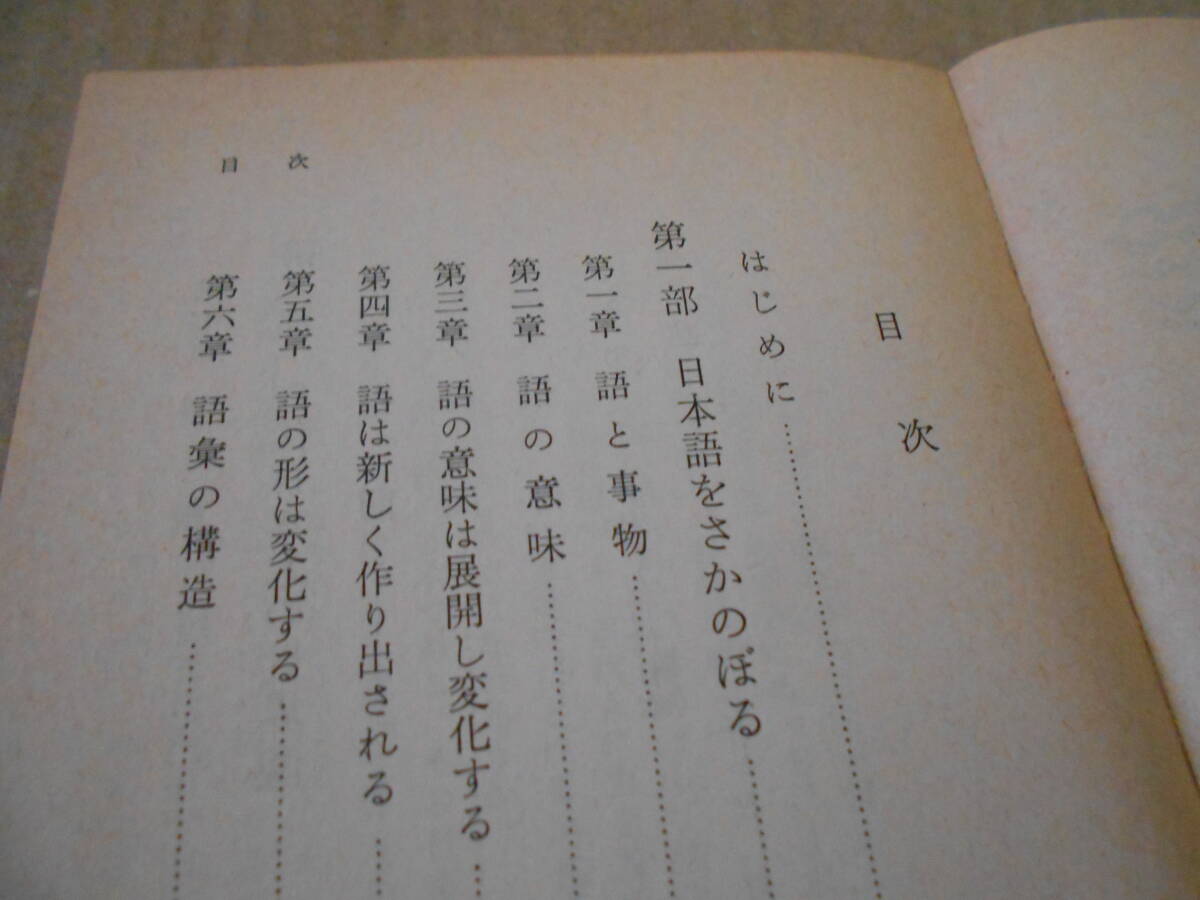 目次
はじめに
第一部 日本語をさかのぼる
第一章 語と事物
第二章 語の意味
第三章 語の意味は展開し変化する
第四章 語は新しく作り出される
第五章 語の形は変化する
第六章 語彙の構造
目次